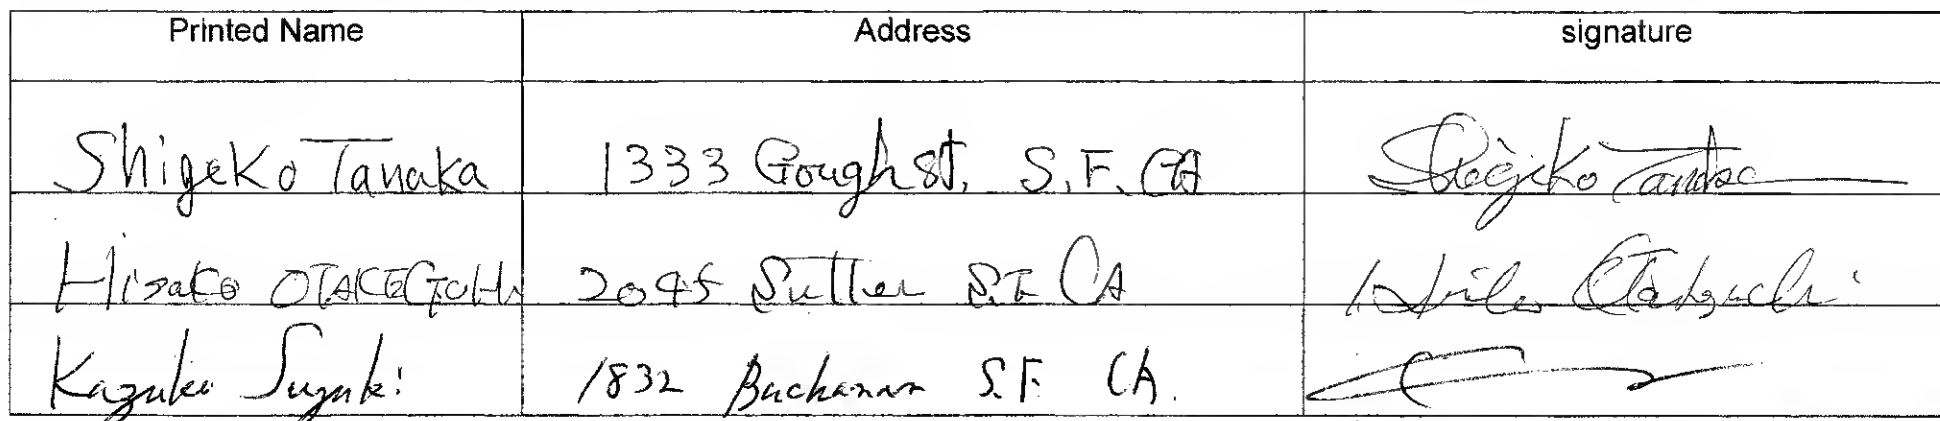 Printed Name Address signature
Shigeko Tanaka 1333 Gough St. S.F. CA Shigeko Tanaka
Hisako 2045 Sutter S.F. CA Hisako Otakeguchi
Kazuko Suzuki 1832 Buchanan S.F. CA.